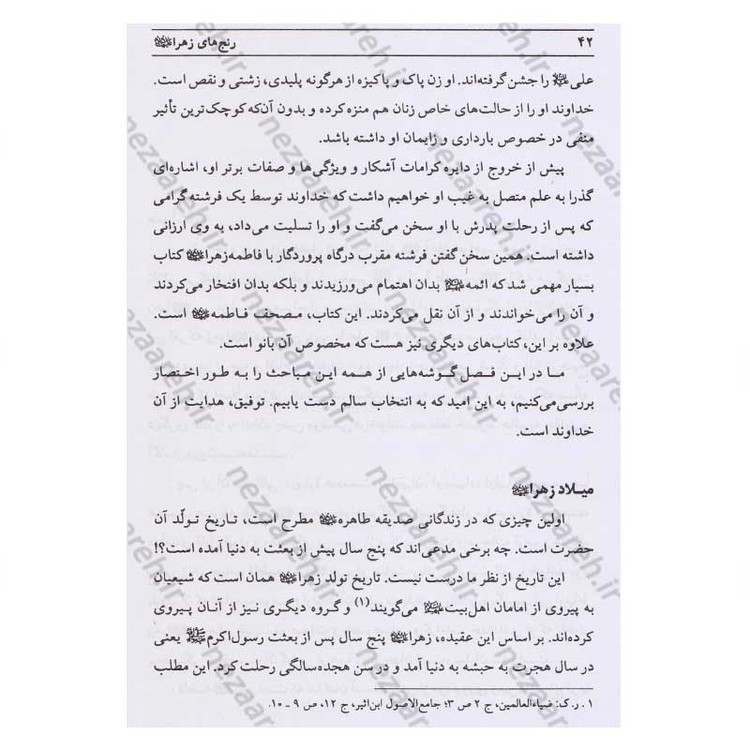 ۴۲ رنج‌های زهرا
علی را جشن گرفته‌اند. او زن پاک و پاکیزه از هرگونه پلیدی، زشتی و نقص است.
خداوند او را از حالت‌های خاص زنان هم منزه کرده و بدون آن‌که کوچک‌ترین تأثیر
منفی در خصوص بارداری و زایمان او داشته باشد.
پیش از خروج از دایره کرامات آشکار و ویژگی‌ها و صفات برتر او، اشاره‌ای
گذرا به علم متصل به غیب او خواهیم داشت که خداوند توسط یک فرشته گرامی
که پس از رحلت پدرش با او سخن می‌گفت و او را تسلیت می‌داد، به وی ارزانی
داشته است. همین سخن گفتن فرشته مقرب درگاه پروردگار با فاطمه زهرا کتاب
بسیار مهمی شد که ائمه بدان اهتمام می‌ورزیدند و بلکه بدان افتخار می‌کردند
و آن را می‌خواندند و از آن نقل می‌کردند. این کتاب، مصحف فاطمه است.
علاوه بر این، کتاب‌های دیگری نیز هست که مخصوص آن بانو است.
ما در این فصل گوشه‌هایی از همه این مباحث را به طور اختصار
بررسی می‌کنیم، به این امید که به انتخاب سالم دست یابیم. توفیق، هدایت از آن
خداوند است.
میلاد زهرا
اولین چیزی که در زندگانی صدیقه طاهره مطرح است، تاریخ تولّد آن
حضرت است. چه برخی مدعی‌اند که پنج سال پیش از بعثت به دنیا آمده است؟!
این تاریخ از نظر ما درست نیست. تاریخ تولد زهرا همان است که شیعیان
به پیروی از امامان اهل‌بیت می‌گویند(۱) و گروه دیگری نیز از آنان پیروی
کرده‌اند. بر اساس این عقیده، زهرا پنج سال پس از بعثت رسول‌اکرم ﷺ یعنی
در سال هجرت به حبشه به دنیا آمد و در سن هجده‌سالگی رحلت کرد. این مطلب
۱ . ر.ک: ضیاءالعالمین، ج ۲ ص ۳؛ جامع‌الاصول ابن‌اثیر، ج ۱۲، ص ۹ - ۱۰.
nezaareh.ir